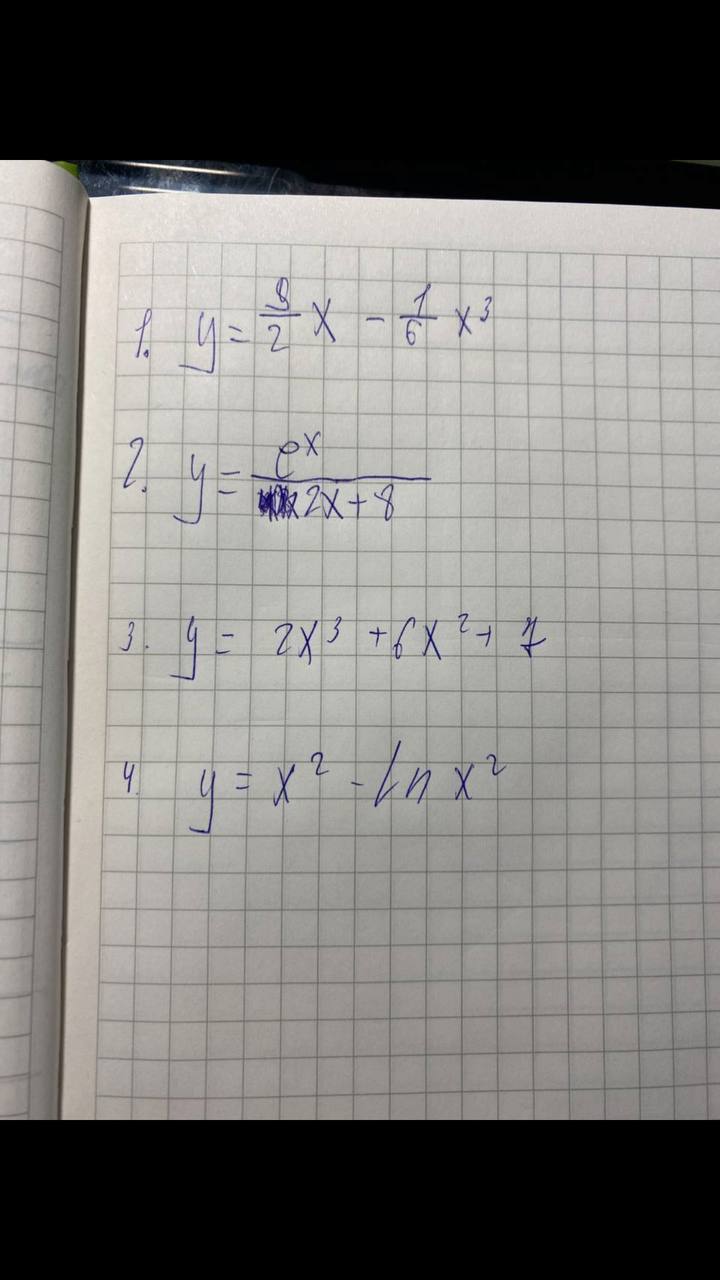 1. y = 8/2 x - 1/6 x³
2. y = eˣ / 2x + 8
3. y = 2x³ + 6x² + 7
4. y = x² - ln x²